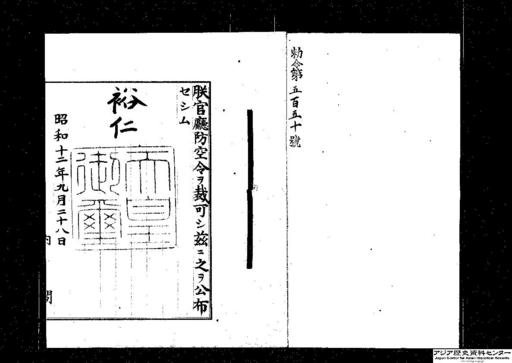 勅令第五百五十號
朕官廳防空令ヲ裁可シ茲ニ之ヲ公布
セシム
裕仁
天皇
御璽
昭和十二年九月二十八日
内閣
アジア歴史資料センター
Japan Center for Asian Historical Records